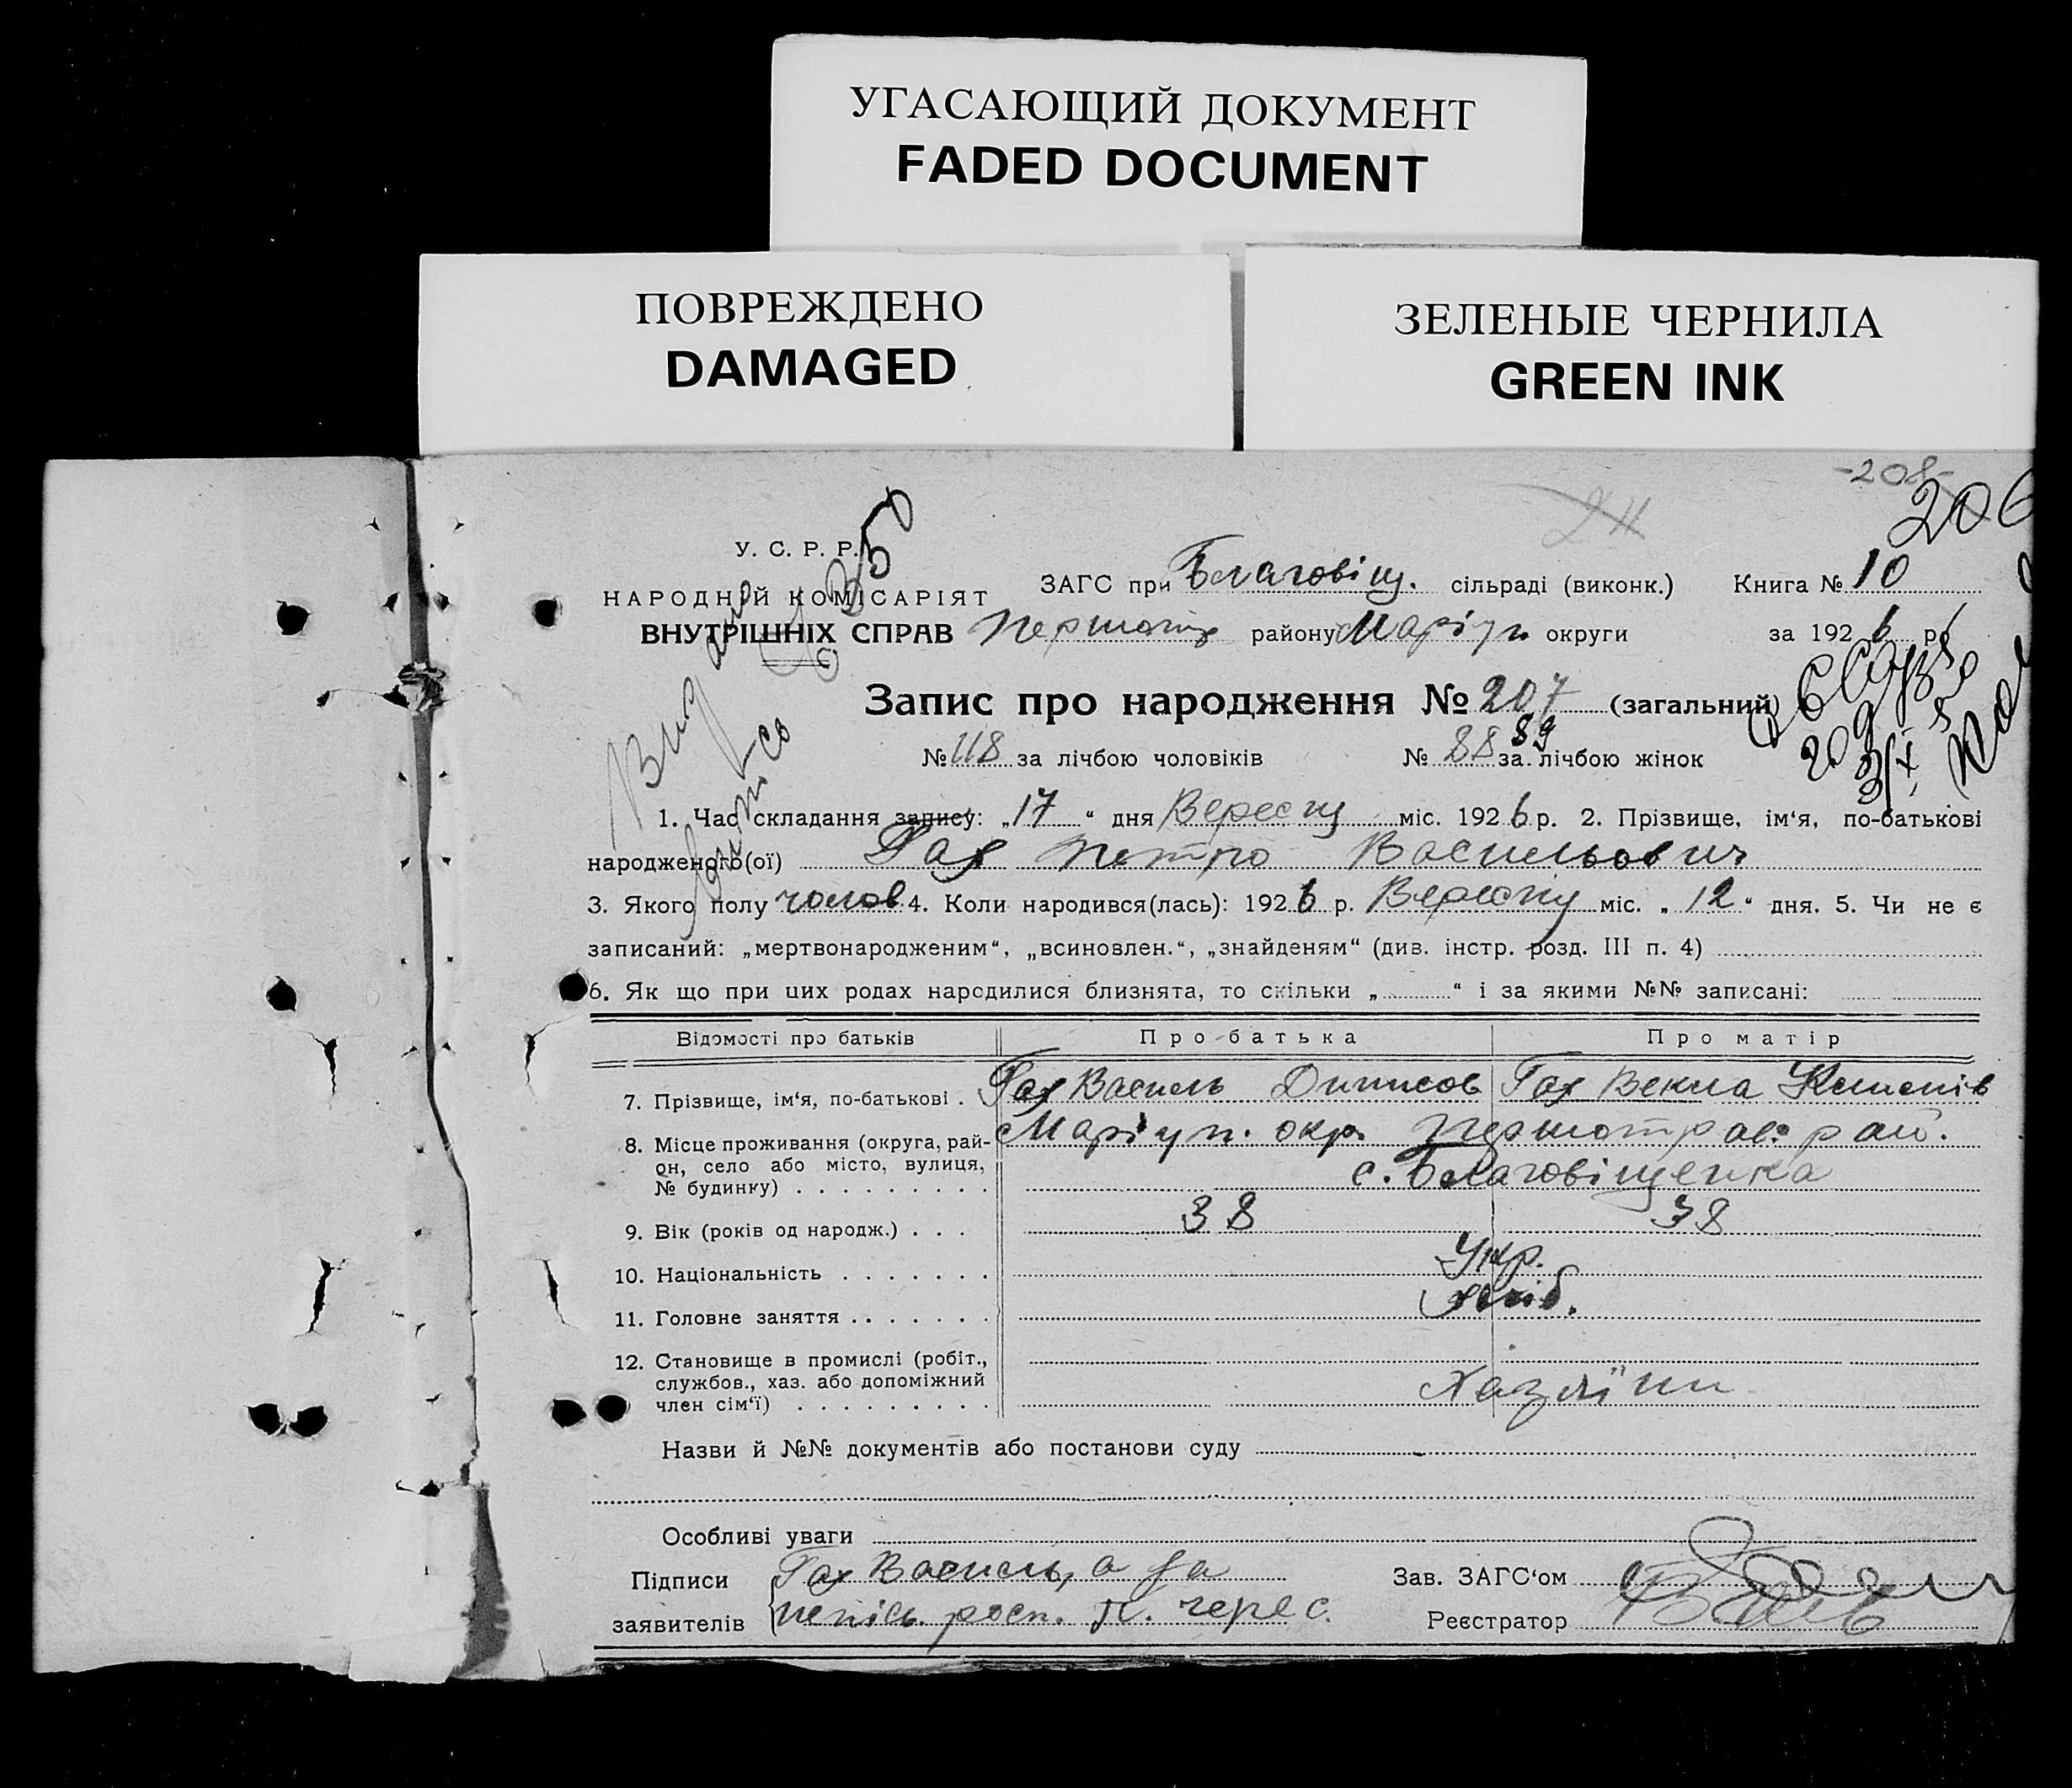 УГАСАЮЩИЙ ДОКУМЕНТ
FADED DOCUMENT
ПОВРЕЖДЕНО
DAMAGED
ЗЕЛЕНЫЕ ЧЕРНИЛА
GREEN INK
-208-
206
У. С. Р. Р.
НАРОДНІЙ КОМІСАРІЯТ
ВНУТРІШНІХ СПРАВ
ЗАГС при Благовіщ. сільраді (виконк.) Книга № 10
Першотр району Маріуп округи за 1926 р.
Запис про народження № 207 (загальний)
№ 118 за лічбою чоловіків № 88 89 за лічбою жінок
1. Час складання запису: „17“ дня Вересня міс. 1926 р. 2. Прізвище, ім‘я, по-батькові
народженого(ої) Гах Петро Васильович
3. Якого полу чолов 4. Коли народився(лась): 1926 р. Вересня міс. „12“ дня. 5. Чи не є
записаний: „мертвонародженим“, „всиновлен.“, „знайденям“ (див. інстр. розд. III п. 4)
6. Як що при цих родах народилися близнята, то скільки „ “ і за якими №№ записані:
Відомості про батьків Про батька Про матір
7. Прізвище, ім‘я, по-батькові . Гах Василь Динисов Гах Векла
8. Місце проживання (округа, рай-
он, село або місто, вулиця,
№ будинку) . . . . . . . . .
Маріуп. окр. Першотрав. рай.
с. Благовіщенка
9. Вік (років од народж.) . . . 38 38
10. Національність . . . . . . . Укр.
11. Головне заняття . . . . . . . хліб.
12. Становище в промислі (робіт.,
службов., хаз. або допоміжний
член сім‘ї) . . . . . . . . .
Хазяїни
Назви й №№ документів або постанови суду
Особливі уваги
Підписи
заявителів
Гах Василь, а за
непісь. росп.
Зав. ЗАГС‘ом
Реєстратор